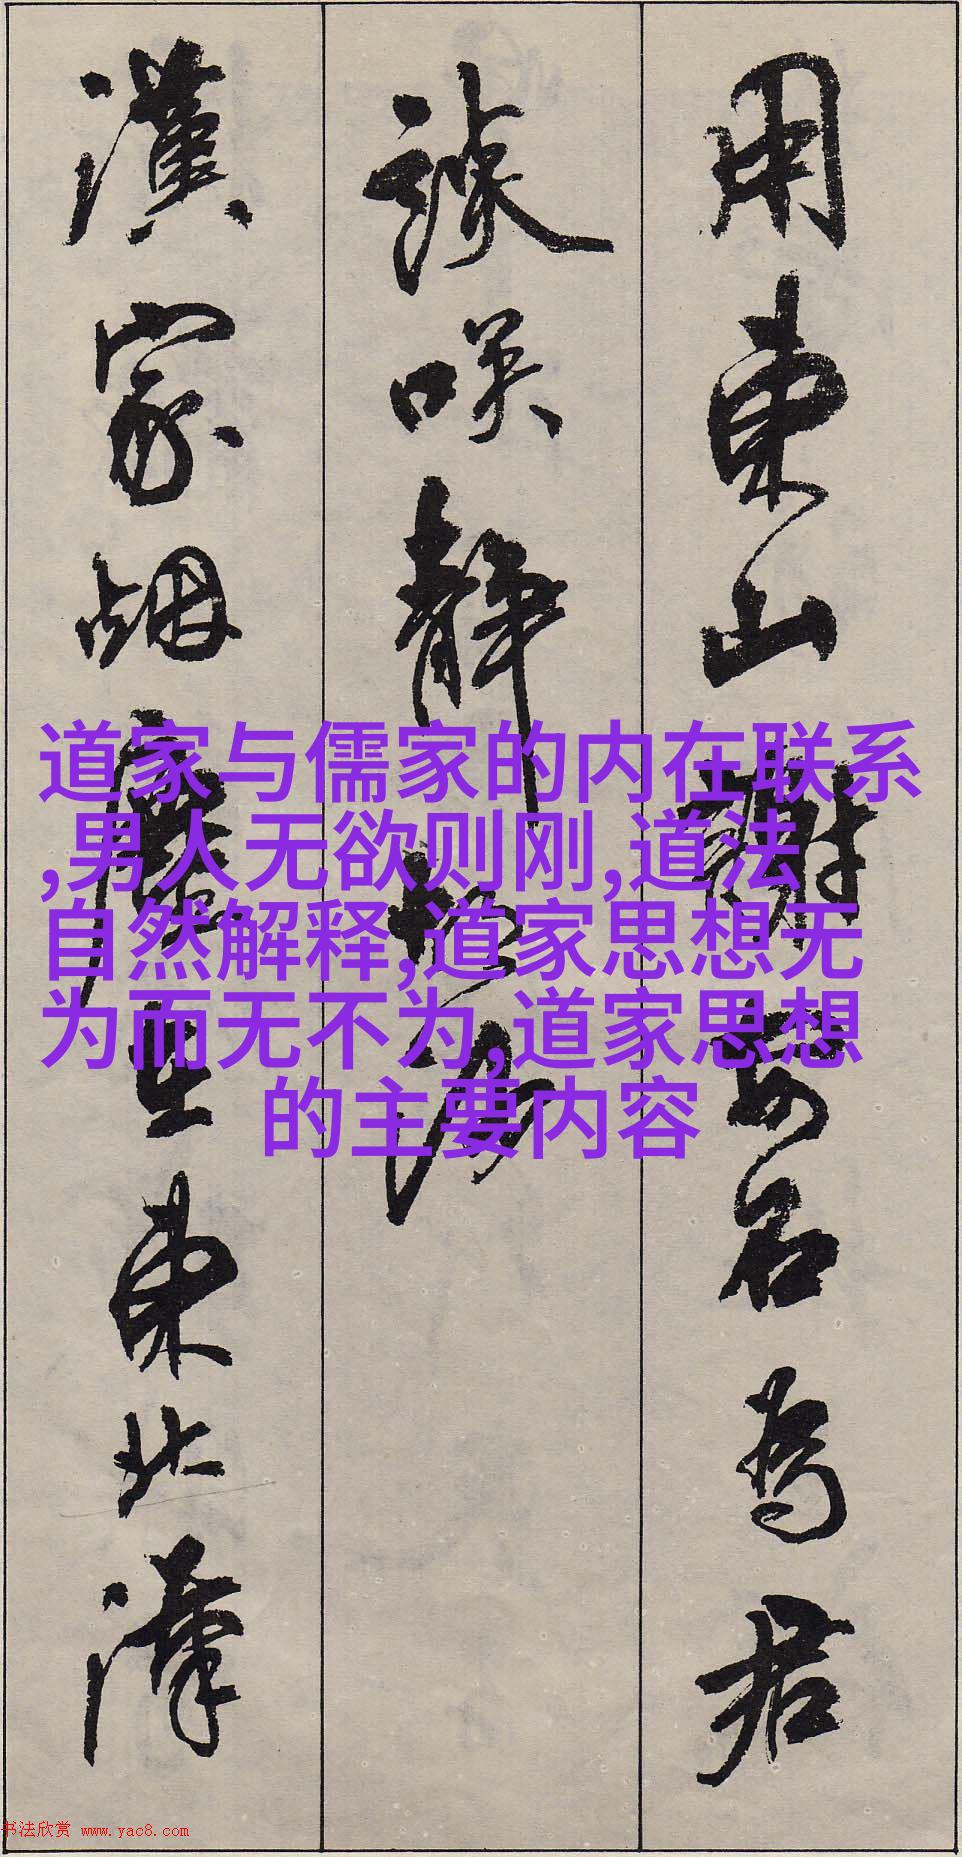 用東山謝安石爲君
談咲靜胡沙
漢家烟塵在東北漢
道家与儒家的内在联系
,男人无欲则刚,道法
自然解释,道家思想无
为而无不为,道家思想
的主要内容
书法欣赏 www.yac8.com